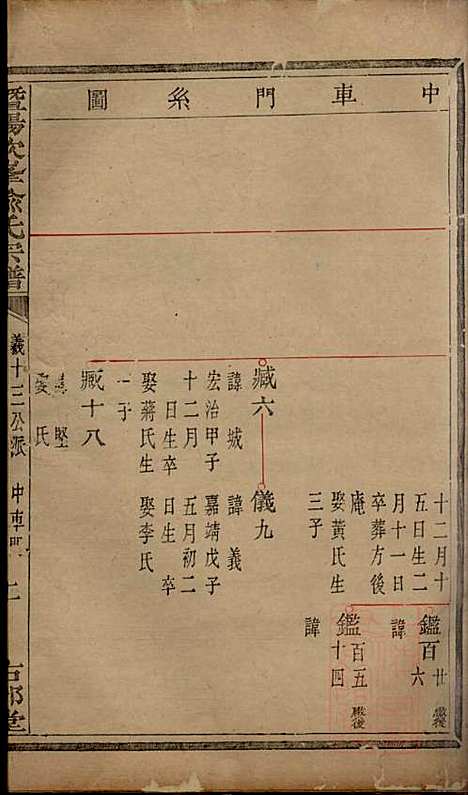 中車門系圖
十二月十
五日生二
月十一日
卒葬方後
庵
娶黃氏生
三子
鑑百廿六
諱
繼後
鑑百五十四
諱
繼後
臧六
諱城
宏治甲子
十二月
日生卒
娶蔣氏生
一子
儀九
諱義
嘉靖戊子
五月初二
日生卒
娶李氏
臧十八
堅
氏
暨陽次峯俞氏宗譜
義十三公派
中車門